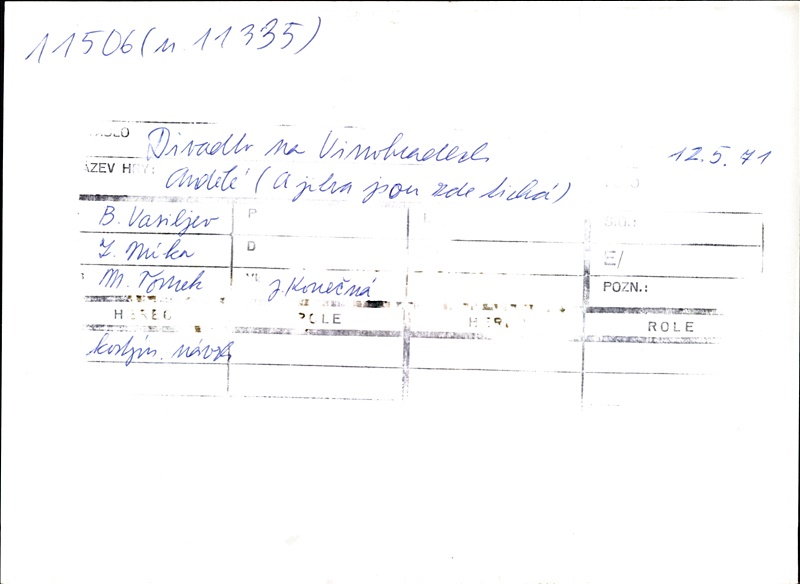 11506 (n 11335)
Divadlo na Vinohradech 12.5.71
ÁZEV HRY: Andělé (A jitra jsou zde tichá)
B. Vasiljev P
Z. Míka D
M. Tomek J. Konečná POZN.:
HEREC ROLE HEREC ROLE
kostým. návrh